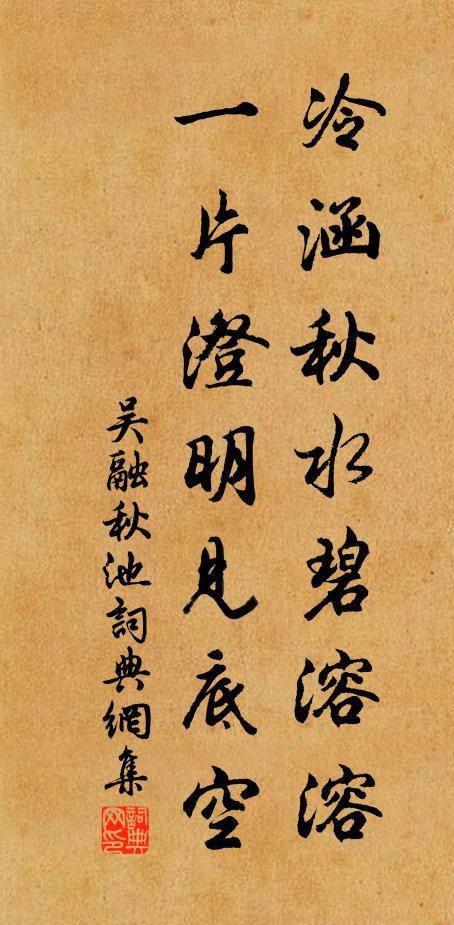 冷涵秋水碧溶溶
一片澄明見底空
吴融秋池詞典網集
詞典网印